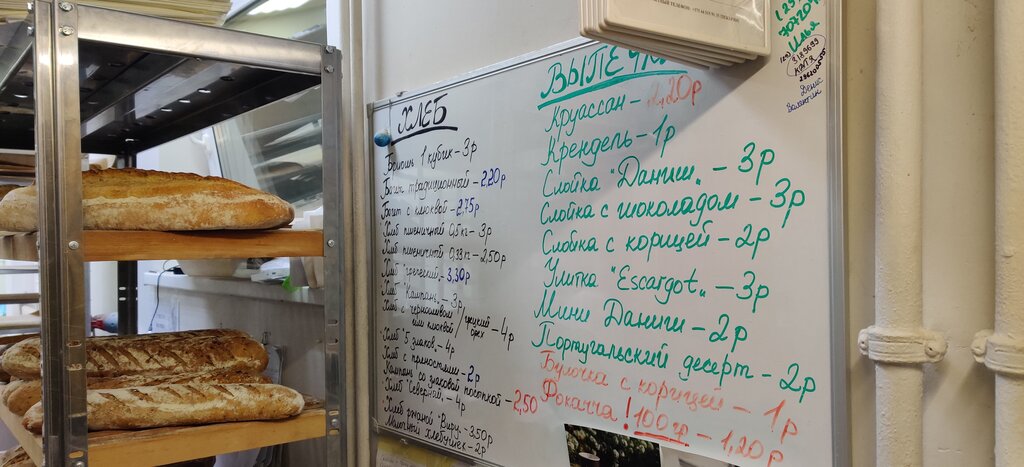 ХЛЕБ
1 кубик - 3р
Багет традиционный - 2,20р
Багет с клюквой - 2,75р
Хлеб пшеничный 0,5кг - 3р
Хлеб пшеничный 0,33кг - 2,50р
Хлеб "Греческий" - 3,30р
Хлеб "Кампань" - 3р
Хлеб с черносливом / грецкий орех
или клюквой - 4р
Хлеб "5 злаков" - 4р
Хлеб с пряностями - 2р
Кампань со злаковой посыпкой - 2,50
Хлеб "Северный" - 4р
Хлеб ржаной "Виру" - 3.50р
хлебушек - 2р
ВЫПЕЧК
Круассан - 2,20р
Крендель - 1р
Слойка "Даниш" - 3р
Слойка с шоколадом - 3р
Слойка с корицей - 2р
Улитка "Escargot" - 3р
Мини Даниш - 2р
Португальский десерт - 2р
Булочка с корицей - 1р
Фокачча ! 100гр - 1,20р
Илья
Денис
Валентин